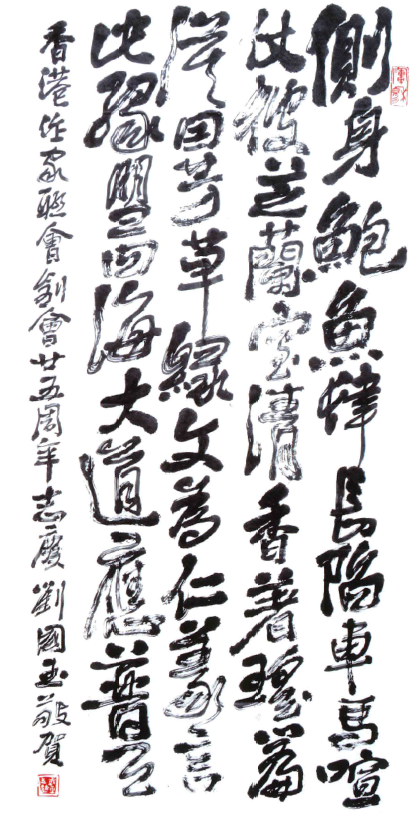 側身鮑魚肆長陷車馬喧
仗彼芝蘭室清香著瑤篇
田芳草緣文為仁義言
四海大道應普
香港作家聯會創會廿五周年志慶 劉國玉敬賀